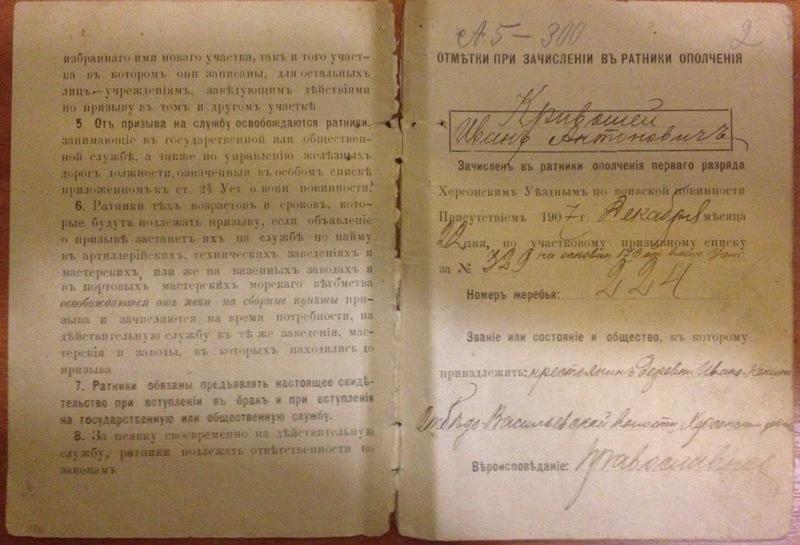 2
избраннаго ими новаго участка, такъ и того участ-
ка въ которомъ они записаны, для остальныхъ
лицъ—учрежденіямъ, завѣдующимъ дѣйствіями
по призыву въ томъ и другомъ участкѣ
5. Отъ призыва на службу освобождаются ратники,
занимающіе въ государственной или обществен-
ной службѣ, а также по управленію желѣзныхъ
дорогъ должности, означенныя въ особомъ спискѣ
приложенномъ къ ст. 24 Уст о воин повинности.
6. Ратники тѣхъ возрастовъ и сроковъ, кото-
рые будутъ подлежать призыву, если объявленіе
о призывѣ застанетъ ихъ на службѣ по найму
въ артиллерійскихъ, техническихъ заведеніяхъ и
мастерскихъ, или же на казенныхъ заводахъ и
въ портовыхъ мастерскихъ морскаго вѣдомства
освобождаются отъ явки на сборные пункты при-
зыва и зачисляются, на время потребности, на
дѣйствительную службу въ тѣ же заведенія, мас-
терскія и заводы, въ которыхъ находились до
призыва
7. Ратники обязаны предъявлять настоящее свидѣ-
тельство при вступленіи въ бракъ и при вступленіи
на государственную или общественную службу.
8. За неявку своевременно на дѣйствительную
службу, ратники подлежатъ отвѣтственности по
законамъ
А 5 — 300 2
ОТМѢТКИ ПРИ ЗАЧИСЛЕНІИ ВЪ РАТНИКИ ОПОЛЧЕНІЯ
Кривошей
Иванъ Антоновичъ
Зачисленъ въ ратники ополченія перваго разряда
Херсонскимъ Уѣзднымъ по воинской повинности
Присутствіемъ 1907 г. Декабря мѣсяца
22 дня, по участковому призывному списку
за № 329 на основан. 173 ст воин. Уст
Номеръ жеребья: 224
Званіе или состояніе и общество, къ которому
принадлежитъ: крестьянинъ деревни Ивано-
Васильевской волости, Херсонскаго
Вѣроисповѣданіе: Православное